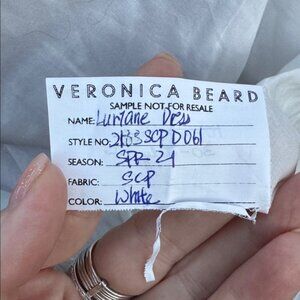 VERONICA BEARD
SAMPLE NOT FOR RESALE
NAME: Luriane Dress
STYLE NO: 2103SCPD061
SEASON: SPR 21
FABRIC: SCP
COLOR: White